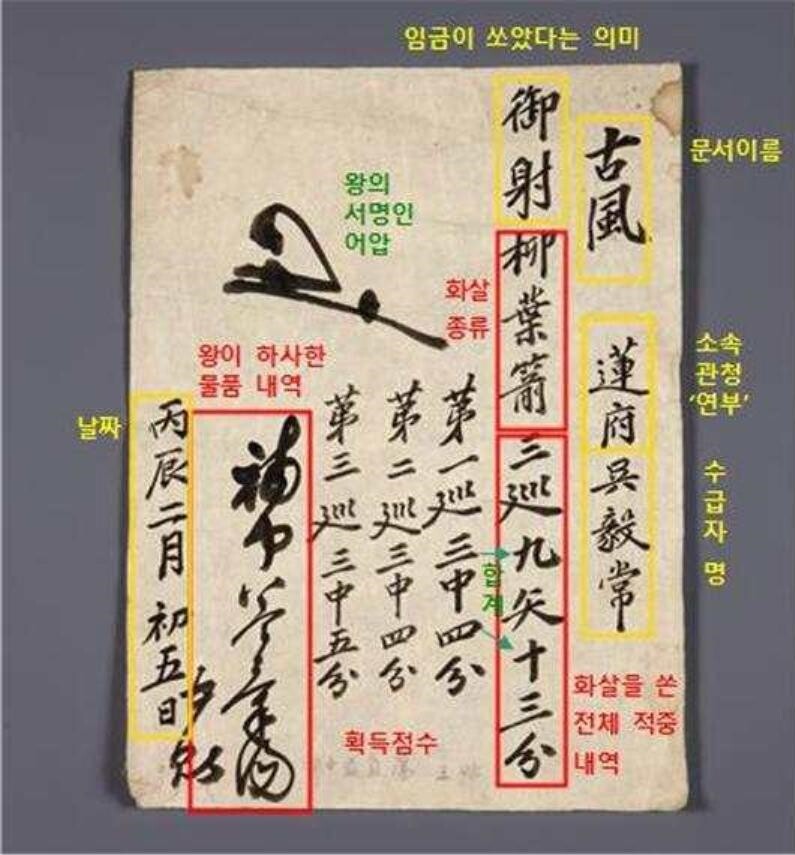 임금이 쏘았다는 의미
문서이름
古風
소속
관청
'연부'
수급자 명
蓮府吳毅常
御射柳葉箭三巡九矢十三分
화살
종류
화살을 쏜
전체 적중
내역
합계
第一巡三中四分
第二巡三中四分
第三巡三中五分
획득점수
왕의
서명인
어압
왕이 하사한
물품 내역
날짜
丙辰二月初五日